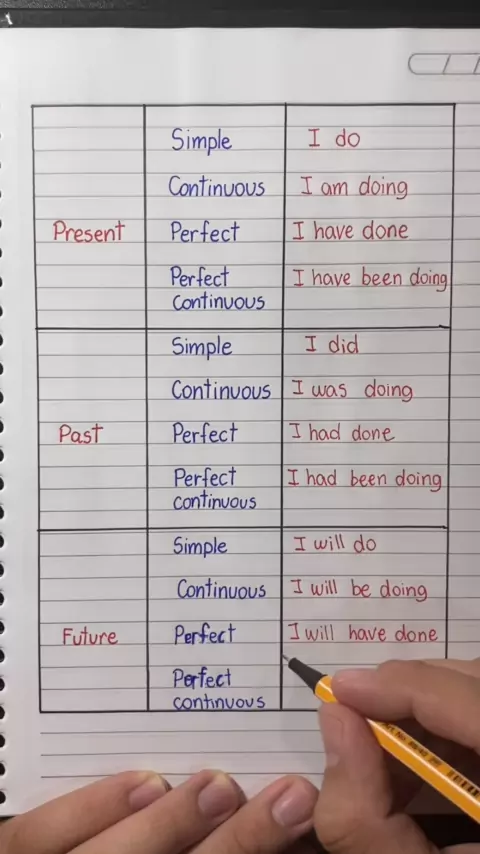 Simple I do
Continuous I am doing
Present Perfect I have done
Perfect I have been doing
continuous
Simple I did
Continuous I was doing
Past Perfect I had done
Perfect I had been doing
continuous
Simple I will do
Continuous I will be doing
Future Perfect I will have done
Perfect
continuous